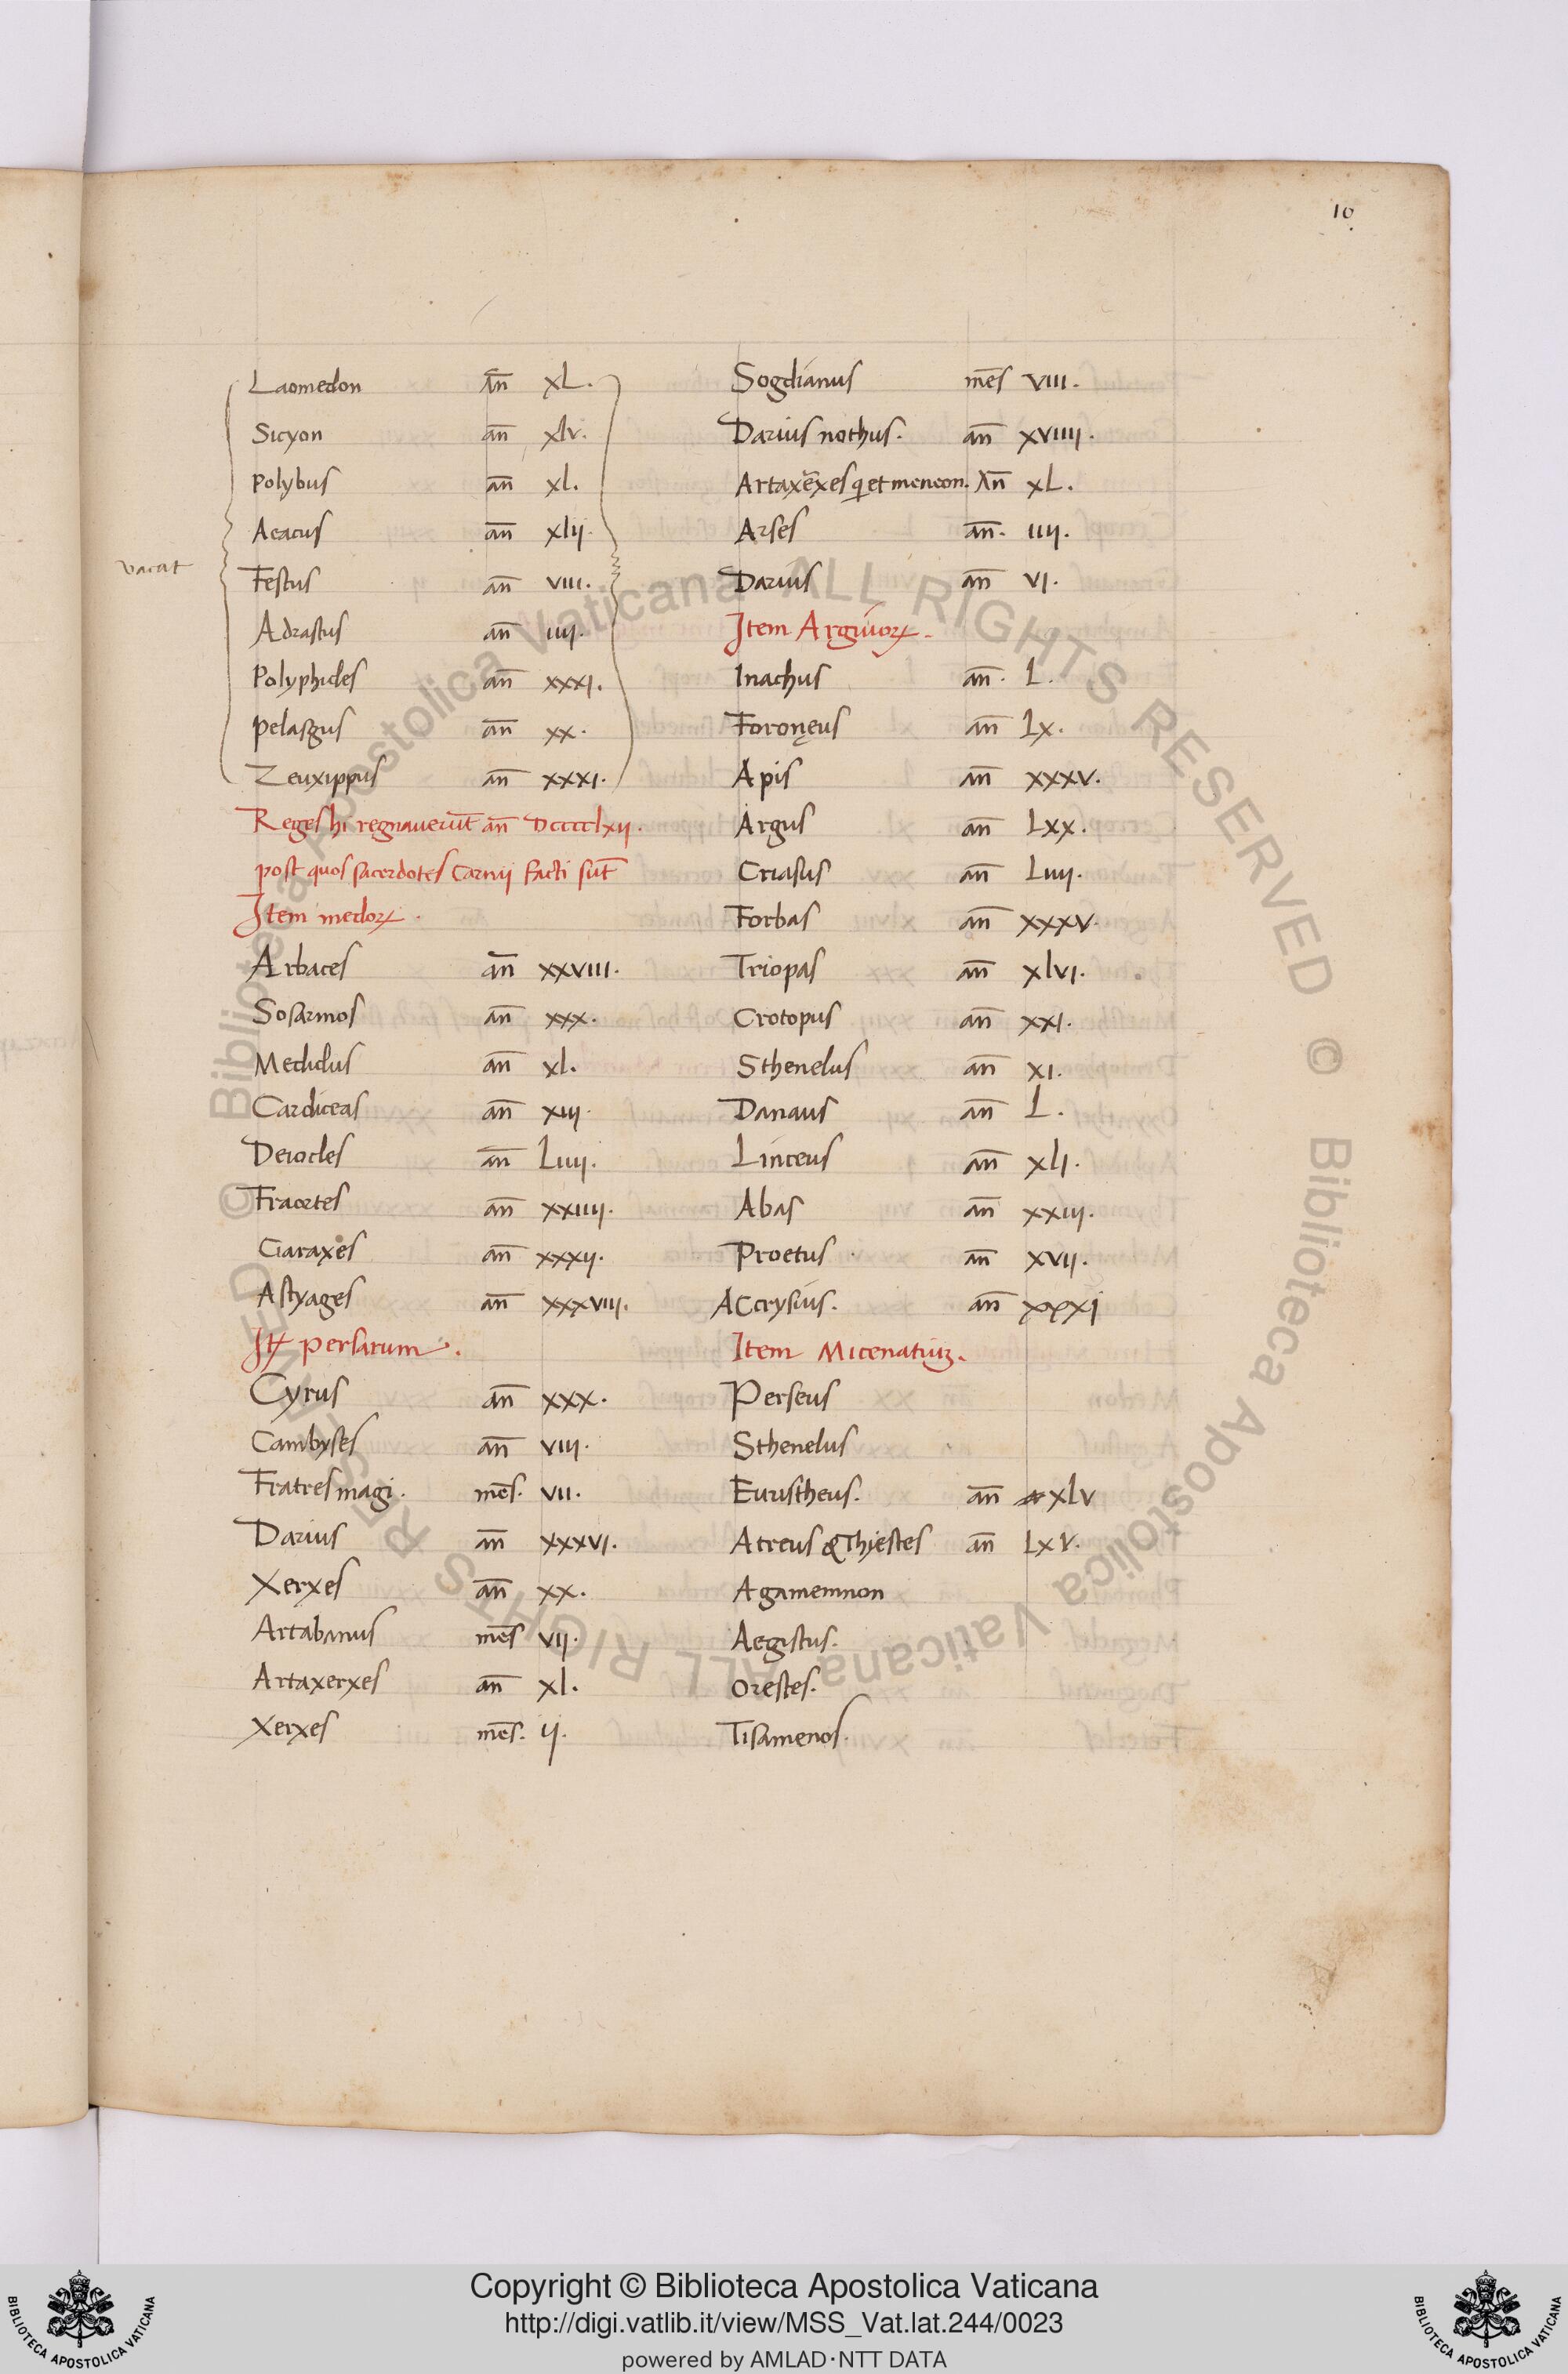 10
Laomedon an̄ xL.
Sicyon an̄ xlv.
Polybus an̄ xl.
Aeacus an̄ xlij.
vacat
Festus an̄ VIII.
Adrastus an̄ IIIJ.
Polyphides an̄ xxxI.
Pelasgus an̄ xx.
Zeuxippus an̄ xxxI.
Reges hi regnauerūt an̄ Dccccclxij.
post quos sacerdotes Carnij facti sūt
Item medoꝝ.
Arbaces an̄ xxVIII.
Sosarmos an̄ xxx.
Medidus an̄ xl.
Cardiceas an̄ xIIJ.
Deiocles an̄ LIIIJ.
Fraortes an̄ xxIIIJ.
Ciaraxes an̄ xxxIJ.
Astyages an̄ xxxVIII.
Itꝝ persarum.
Cyrus an̄ xxx.
Cambyses an̄ VIII.
Fratres magi. mēs. VII.
Darius an̄ xxxVI.
Xerxes an̄ xx.
Artabanus mēs VIJ.
Artaxerxes an̄ xl.
Xerxes mēs. ij.
Sogdianus mēs VIII.
Darius nothus. an̄ xVIIIJ.
Artaxērxes q̄ et meneon. An̄ xL.
Arses an̄. IIIJ.
Darius an̄ VI.
Item Argiuoꝝ.
Inachus an̄. L.
Foronęus an̄ Lx.
Apis an̄ xxxV.
Argus an̄ Lxx.
Criasus an̄ LIIIJ.
Forbas an̄ xxxV.
Triopas an̄ xlVI.
Crotopus an̄ xxI.
Sthenelus an̄ xI.
Danaus an̄ L.
Linceus an̄ xlI.
Abas an̄ xxIIJ.
Proetus an̄ xVIJ.
Accrysius. an̄ xxxj
Item Micenatiuꝫ.
Perseus
Sthenelus
Euristheus. an̄ xlv
Atreus & Thiestes an̄ LxV.
Agamemnon
Aegistus.
Orestes.
Tisamenos.
© Biblioteca Apostolica Vaticana ALL RIGHTS RESERVED © Biblioteca Apostolica Vaticana ALL RIGHTS RESERVED
Copyright © Biblioteca Apostolica Vaticana
http://digi.vatlib.it/view/MSS_Vat.lat.244/0023
powered by AMLAD·NTT DATA
BIBLIOTECA APOSTOLICA VATICANA
BIBLIOTECA APOSTOLICA VATICANA